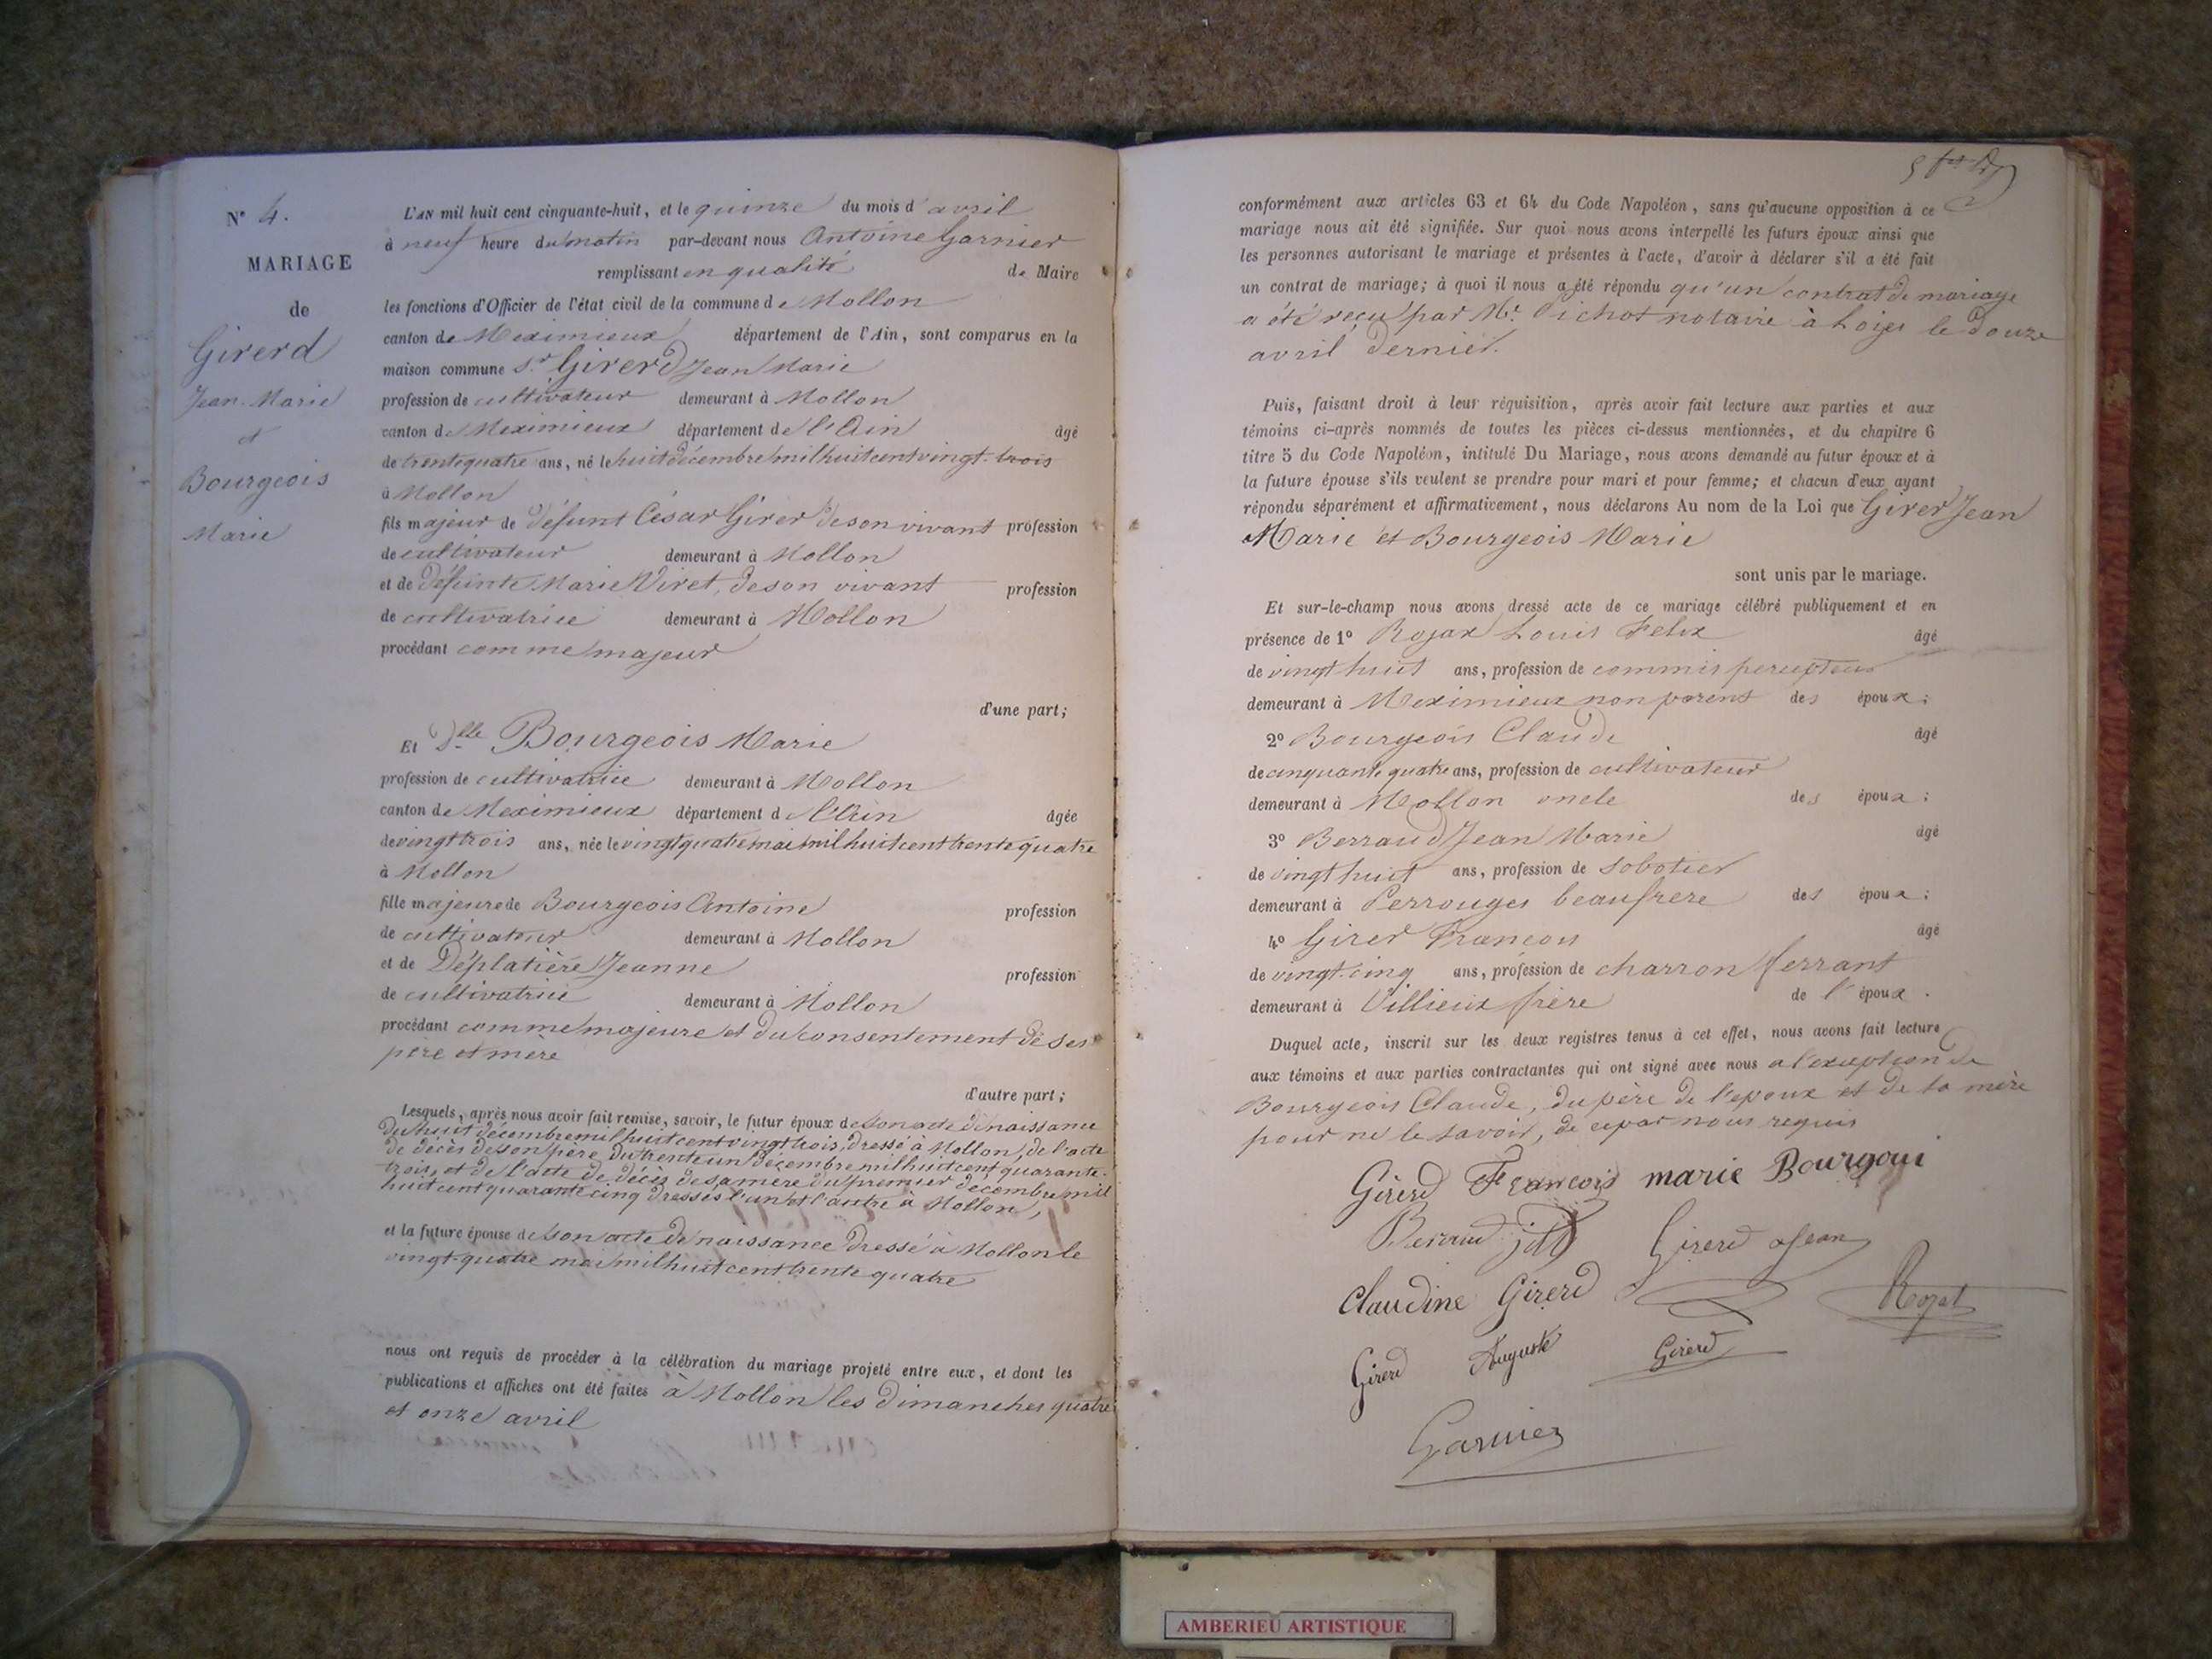 N° 4.
MARIAGE
de
Girerd
Jean-Marie
et
Bourgeois
Marie
L'AN mil huit cent cinquante-huit, et le quinze du mois d'avril
à neuf heure du matin par-devant nous Antoine Garnier
remplissant en qualité de Maire
les fonctions d'Officier de l'état civil de la commune de Mollon
canton de Meximieux département de l'Ain, sont comparus en la
maison commune Sr Girerd Jean Marie
profession de cultivateur demeurant à Mollon
canton de Meximieux département de l'Ain âgé
de trente quatre ans, né le huit décembre mil huit cent vingt-trois
à Mollon
fils majeur de défunt César Girer de son vivant profession
de cultivateur demeurant à Mollon
et de défunte Marie Viret, de son vivant profession
de cultivatrice demeurant à Mollon
procédant comme majeur
d'une part;
Et Dlle Bourgeois Marie
profession de cultivatrice demeurant à Mollon
canton de Meximieux département de l'Ain âgée
de vingt trois ans, née le vingt quatre mai mil huit cent trente quatre
à Mollon
fille majeure de Bourgeois Antoine profession
de cultivateur demeurant à Mollon
et de Déplatière Jeanne profession
de cultivatrice demeurant à Mollon
procédant comme majeure et du consentement de ses
père et mère
d'autre part;
Lesquels, après nous avoir fait remise, savoir, le futur époux de son acte de naissance
du huit décembre mil huit cent vingt trois, dressé à Mollon, de l'acte
de décès de son père du trente un décembre mil huit cent quarante-
trois, et de l'acte de décès de sa mère du premier décembre mil
huit cent quarante cinq dressés l'un et l'autre à Mollon,
et la future épouse de son acte de naissance dressé à Mollon le
vingt-quatre mai mil huit cent trente quatre
nous ont requis de procéder à la célébration du mariage projeté entre eux, et dont les
publications et affiches ont été faites à Mollon les dimanches quatre
et onze avril
conformément aux articles 63 et 64 du Code Napoléon, sans qu'aucune opposition à ce
mariage nous ait été signifiée. Sur quoi nous avons interpellé les futurs époux ainsi que
les personnes autorisant le mariage et présentes à l'acte, d'avoir à déclarer s'il a été fait
un contrat de mariage; à quoi il nous a été répondu qu'un contrat de mariage
a été reçu par Me Pichot notaire à Loyes le douze
avril dernier.
Puis, faisant droit à leur réquisition, après avoir fait lecture aux parties et aux
témoins ci-après nommés de toutes les pièces ci-dessus mentionnées, et du chapitre 6
titre 5 du Code Napoléon, intitulé Du Mariage, nous avons demandé au futur époux et à
la future épouse s'ils veulent se prendre pour mari et pour femme; et chacun d'eux ayant
répondu séparément et affirmativement, nous déclarons Au nom de la Loi que Girer Jean
Marie et Bourgeois Marie
sont unis par le mariage.
Et sur-le-champ nous avons dressé acte de ce mariage célébré publiquement et en
présence de 1° Louis Felix âgé
de vingt huit ans, profession de commis percepteur
demeurant à Meximieux non parent des époux;
2° Bourgeois Claude âgé
de cinquante quatre ans, profession de cultivateur
demeurant à Mollon oncle des époux;
3° Berraud Jean Marie âgé
de vingt huit ans, profession de sabotier
demeurant à Perrouges beaufrere des époux;
4° Girer Francois âgé
de vingt-cinq ans, profession de charron ferrant
demeurant à Villieux frère de l'époux.
Duquel acte, inscrit sur les deux registres tenus à cet effet, nous avons fait lecture
aux témoins et aux parties contractantes qui ont signé avec nous a l'exception de
Bourgeois Claude, du père de l'epoux et de la mère
pour ne le savoir, de ce par nous requis
Girerd Francois marie Bourgoui
Berraud Girerd Jean
Claudine Girerd
Girerd Auguste Girerd
Garnier
AMBERIEU ARTISTIQUE